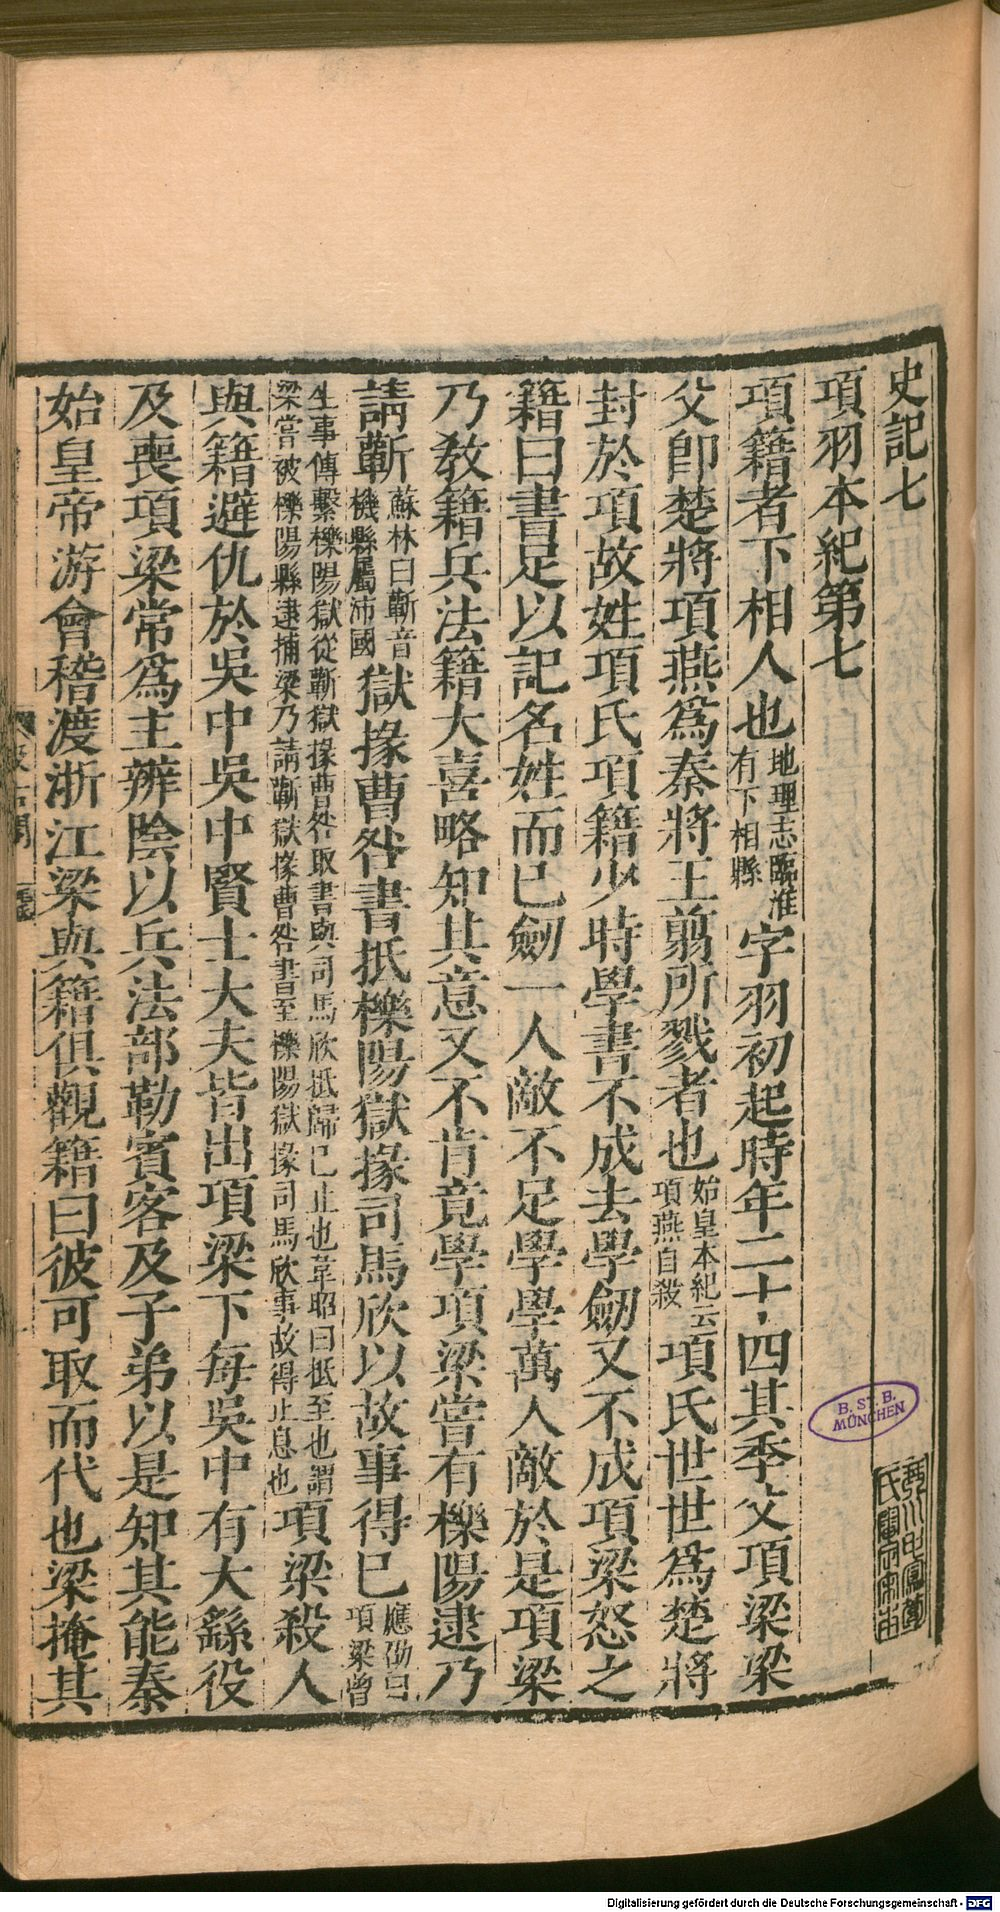 史記七
項羽本紀第七
項籍者下相人也地理志臨淮有下相縣字羽初起時年二十四其季父項梁梁
父卽楚將項燕爲秦將王翦所戮者也始皇本紀云項燕自殺項氏世世爲楚將
封於項故姓項氏項籍少時學書不成去學劒又不成項梁怒之
籍曰書足以記名姓而已劒一人敵不足學學萬人敵於是項梁
乃教籍兵法籍大喜略知其意又不肯竟學項梁嘗有櫟陽逮乃
請蘄蘇林曰蘄音機縣屬沛國獄掾曹咎書抵櫟陽獄掾司馬欣以故事得已應劭曰項梁曾
坐事傳繫櫟陽獄從蘄獄掾曹咎取書與司馬欣抵歸已止也韋昭曰抵至也謂梁嘗被櫟陽縣逮捕梁乃請蘄獄掾曹咎書至櫟陽獄掾司馬欣事故得止息也項梁殺人
與籍避仇於吳中吳中賢士大夫皆出項梁下每吳中有大繇役
及喪項梁常爲主辨陰以兵法部勒賓客及子弟以是知其能秦
始皇帝游會稽渡浙江梁與籍俱觀籍曰彼可取而代也梁掩其
B. ST. B.
MÜNCHEN
Digitalisierung gefördert durch die Deutsche Forschungsgemeinschaft - DFG